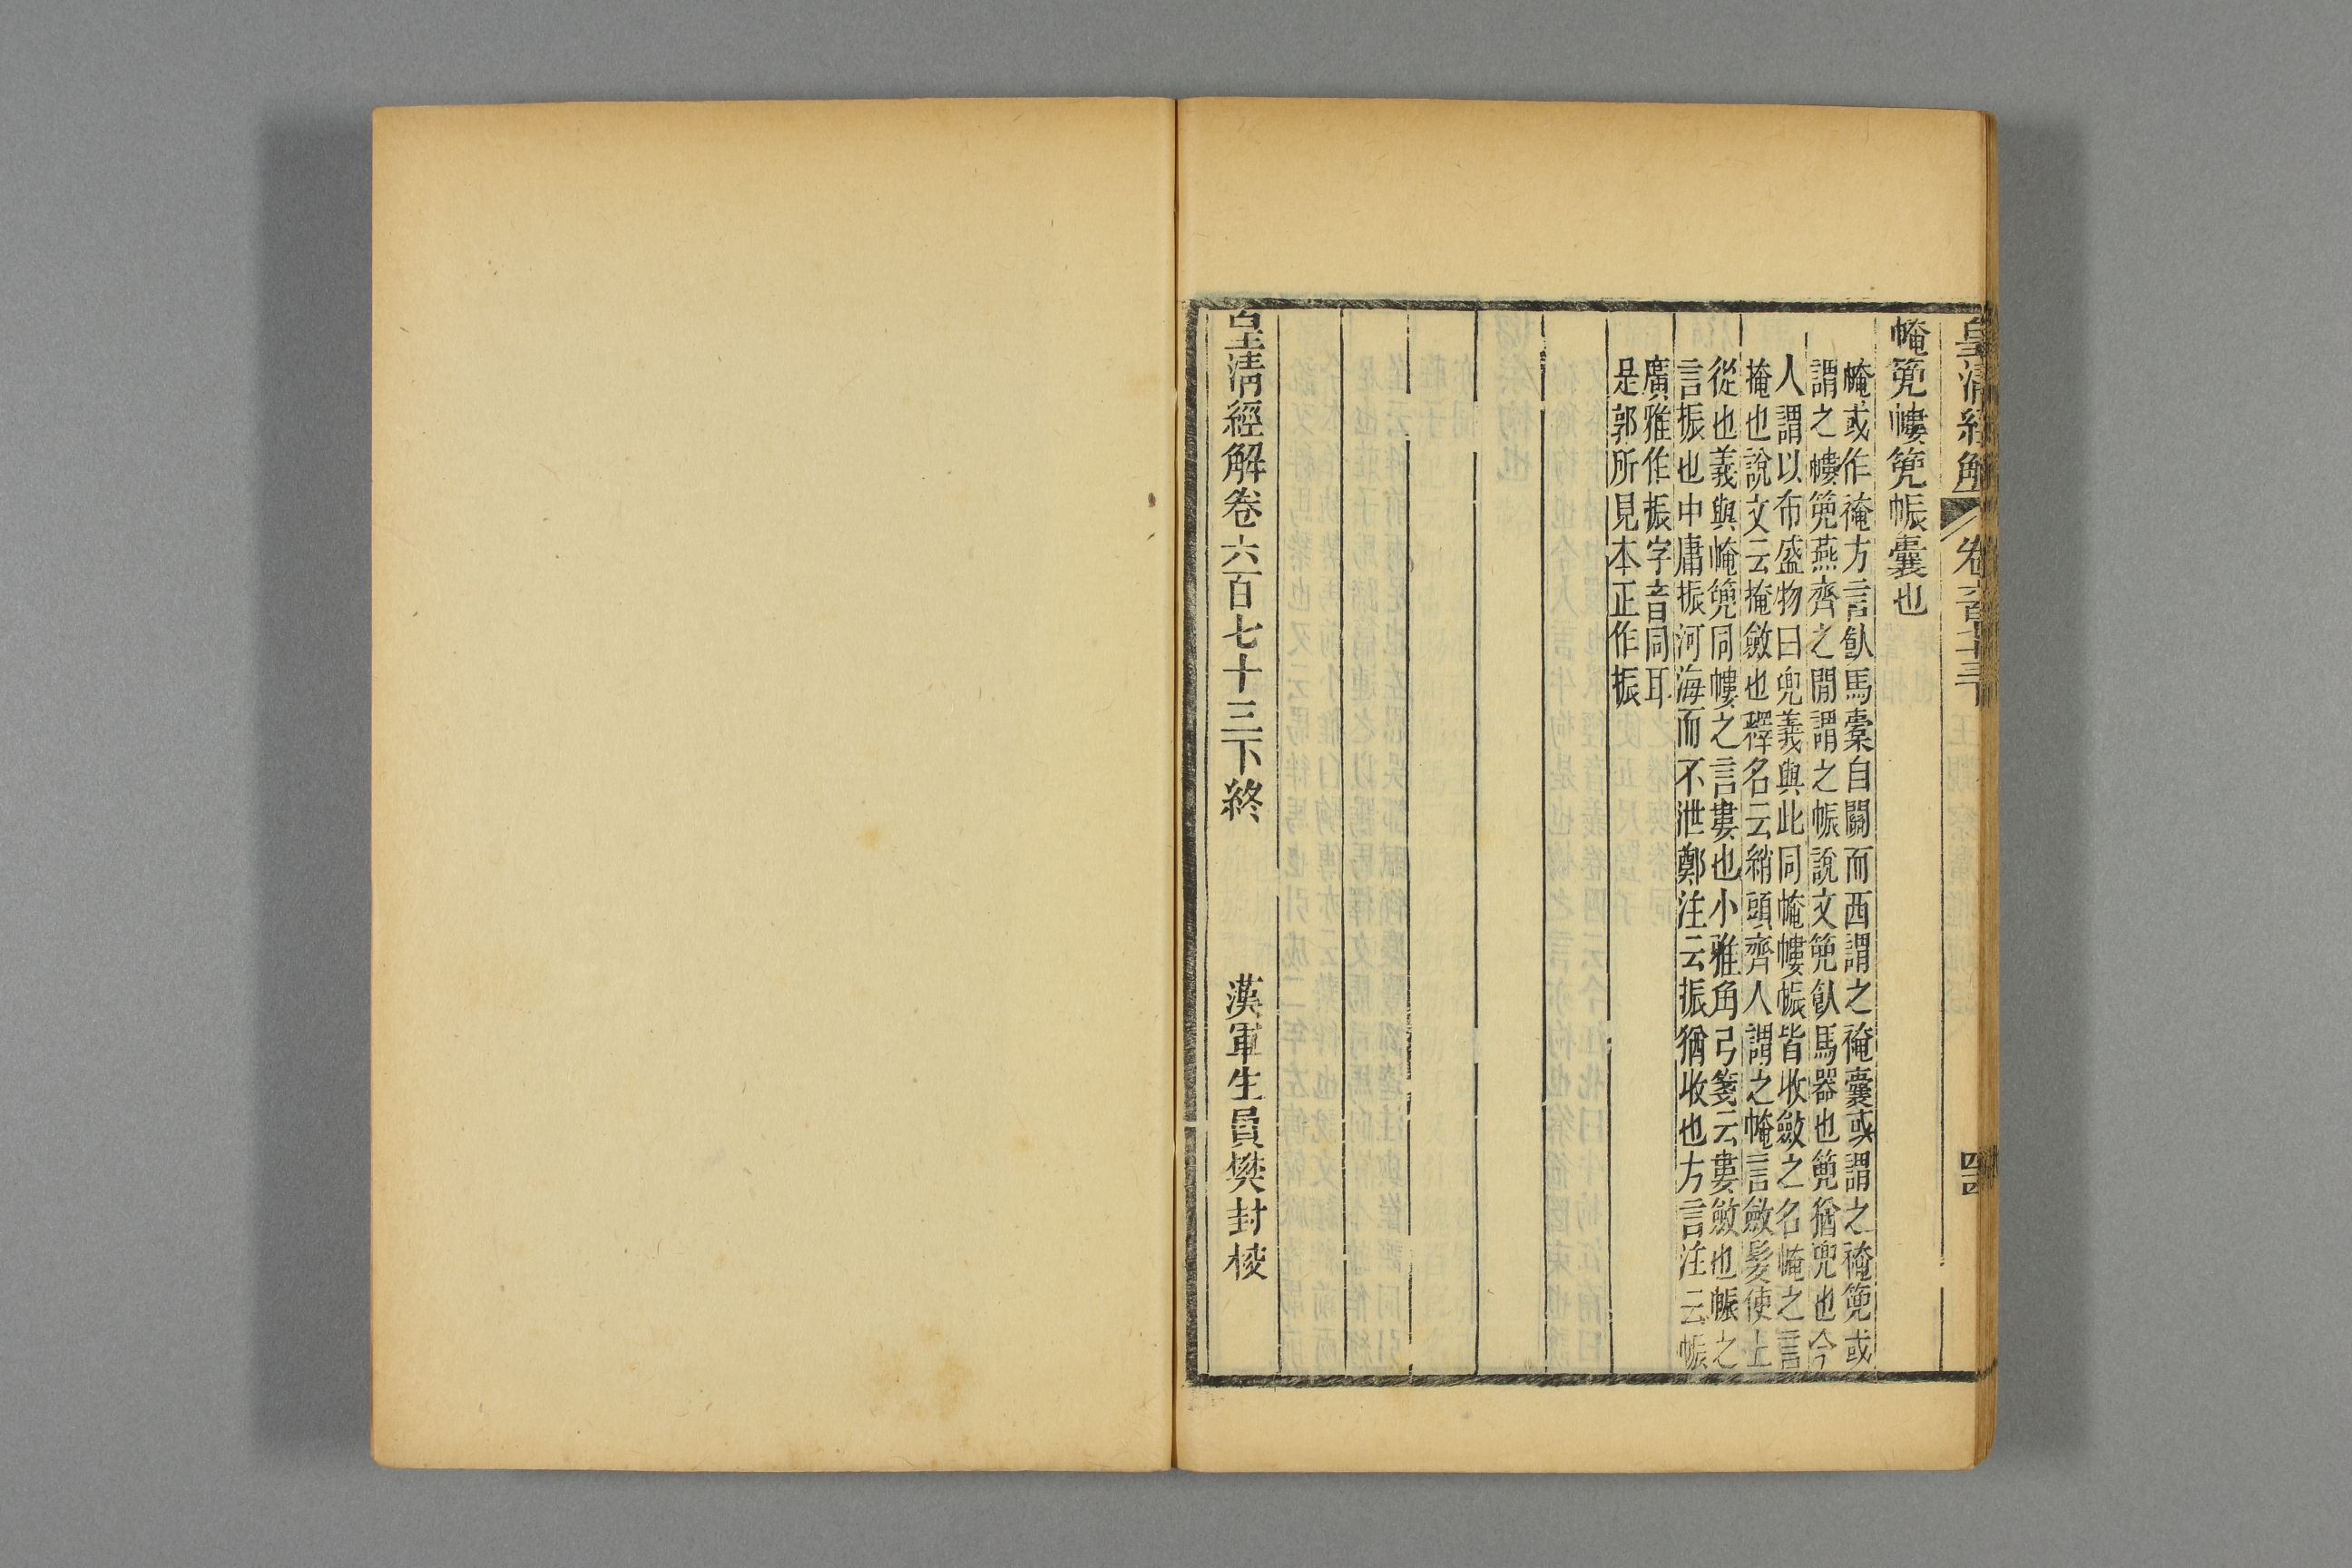 皇清經解 卷六百七十三下 四四
㡋篼㡞篼帪囊也
㡋或作裺方言飤馬橐自關而西謂之裺囊或謂之裺篼或
謂之㡞篼燕齊之閒謂之帪說文篼飤馬器也篼猶兜也今
人謂以布盛物曰兜義與此同㡋㡞帪皆收斂之名㡋之言
掩也說文云掩斂也釋名云綃頭齊人謂之㡋言斂髮使上
從也義與㡋篼同㡞之言婁也小雅角弓箋云婁斂也帪之
言振也中庸振河海而不泄鄭注云振猶收也方言注云帪
廣雅作振字音同耳
是郭所見本正作振
皇清經解卷六百七十三下終 漢軍生員樊封校